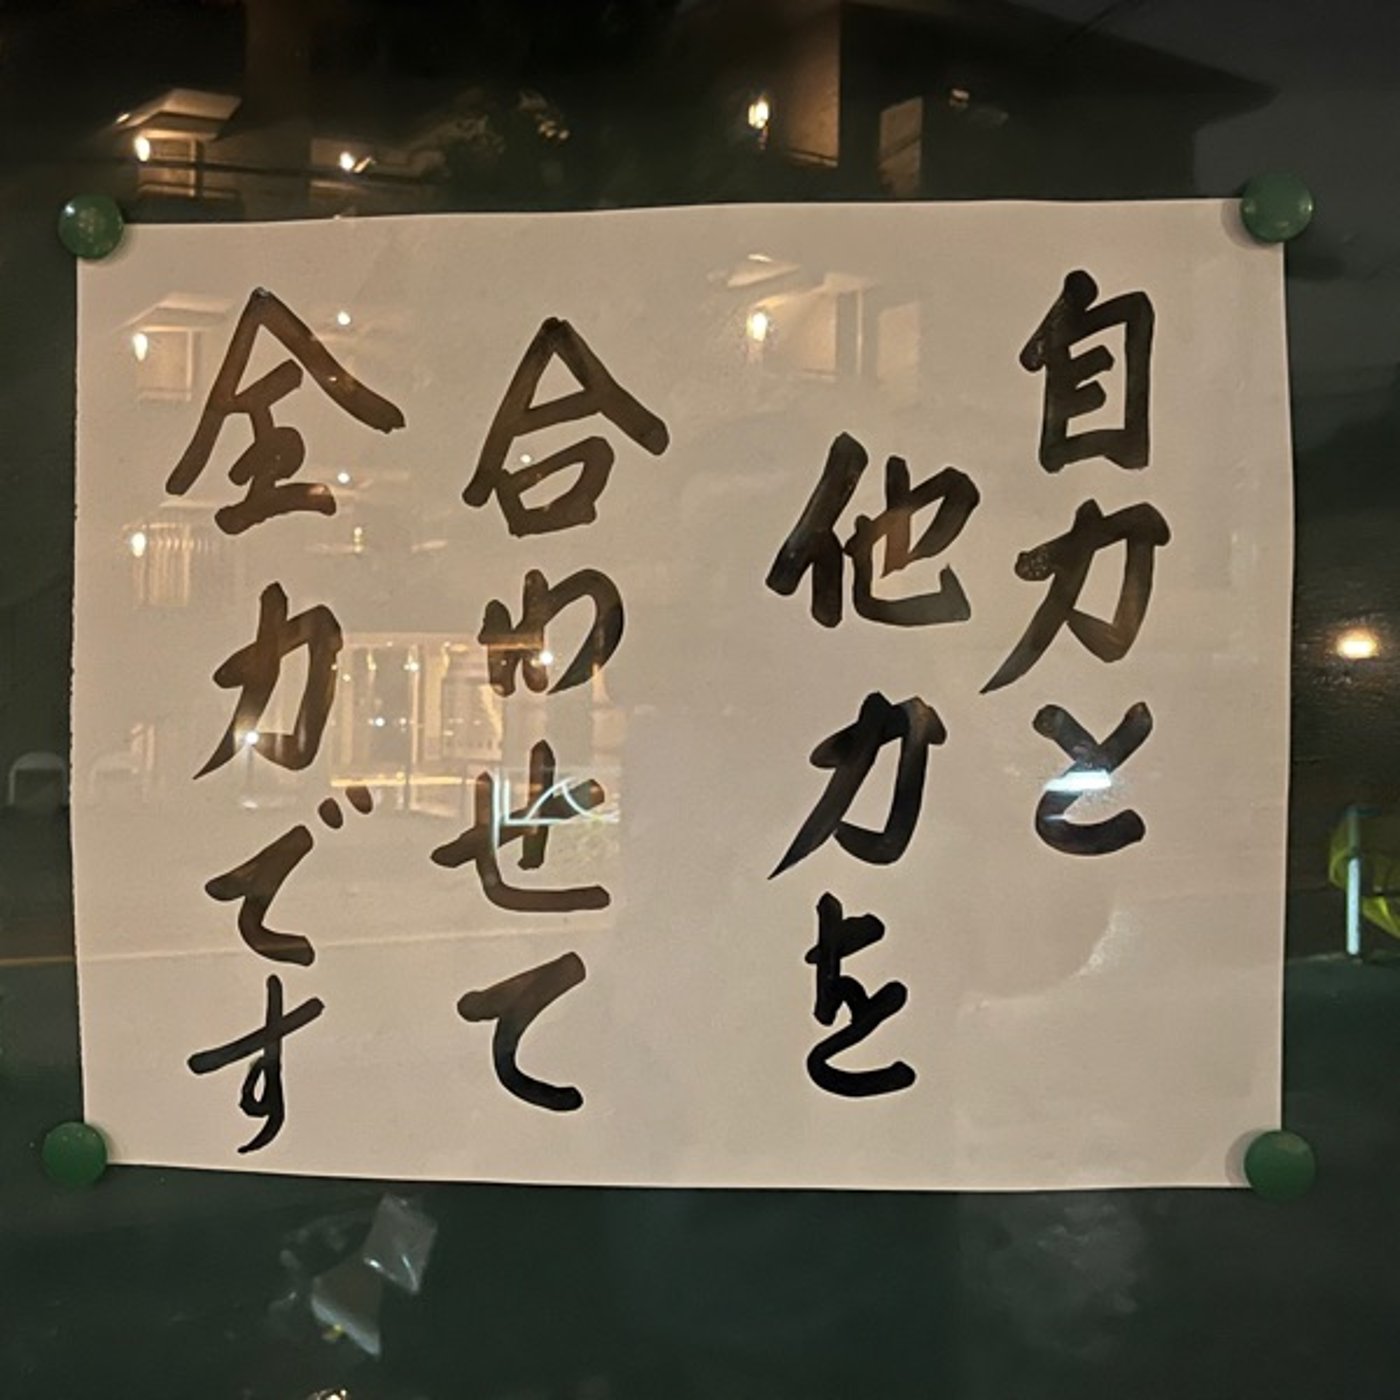 自力と
他力を
合わせて
全力です